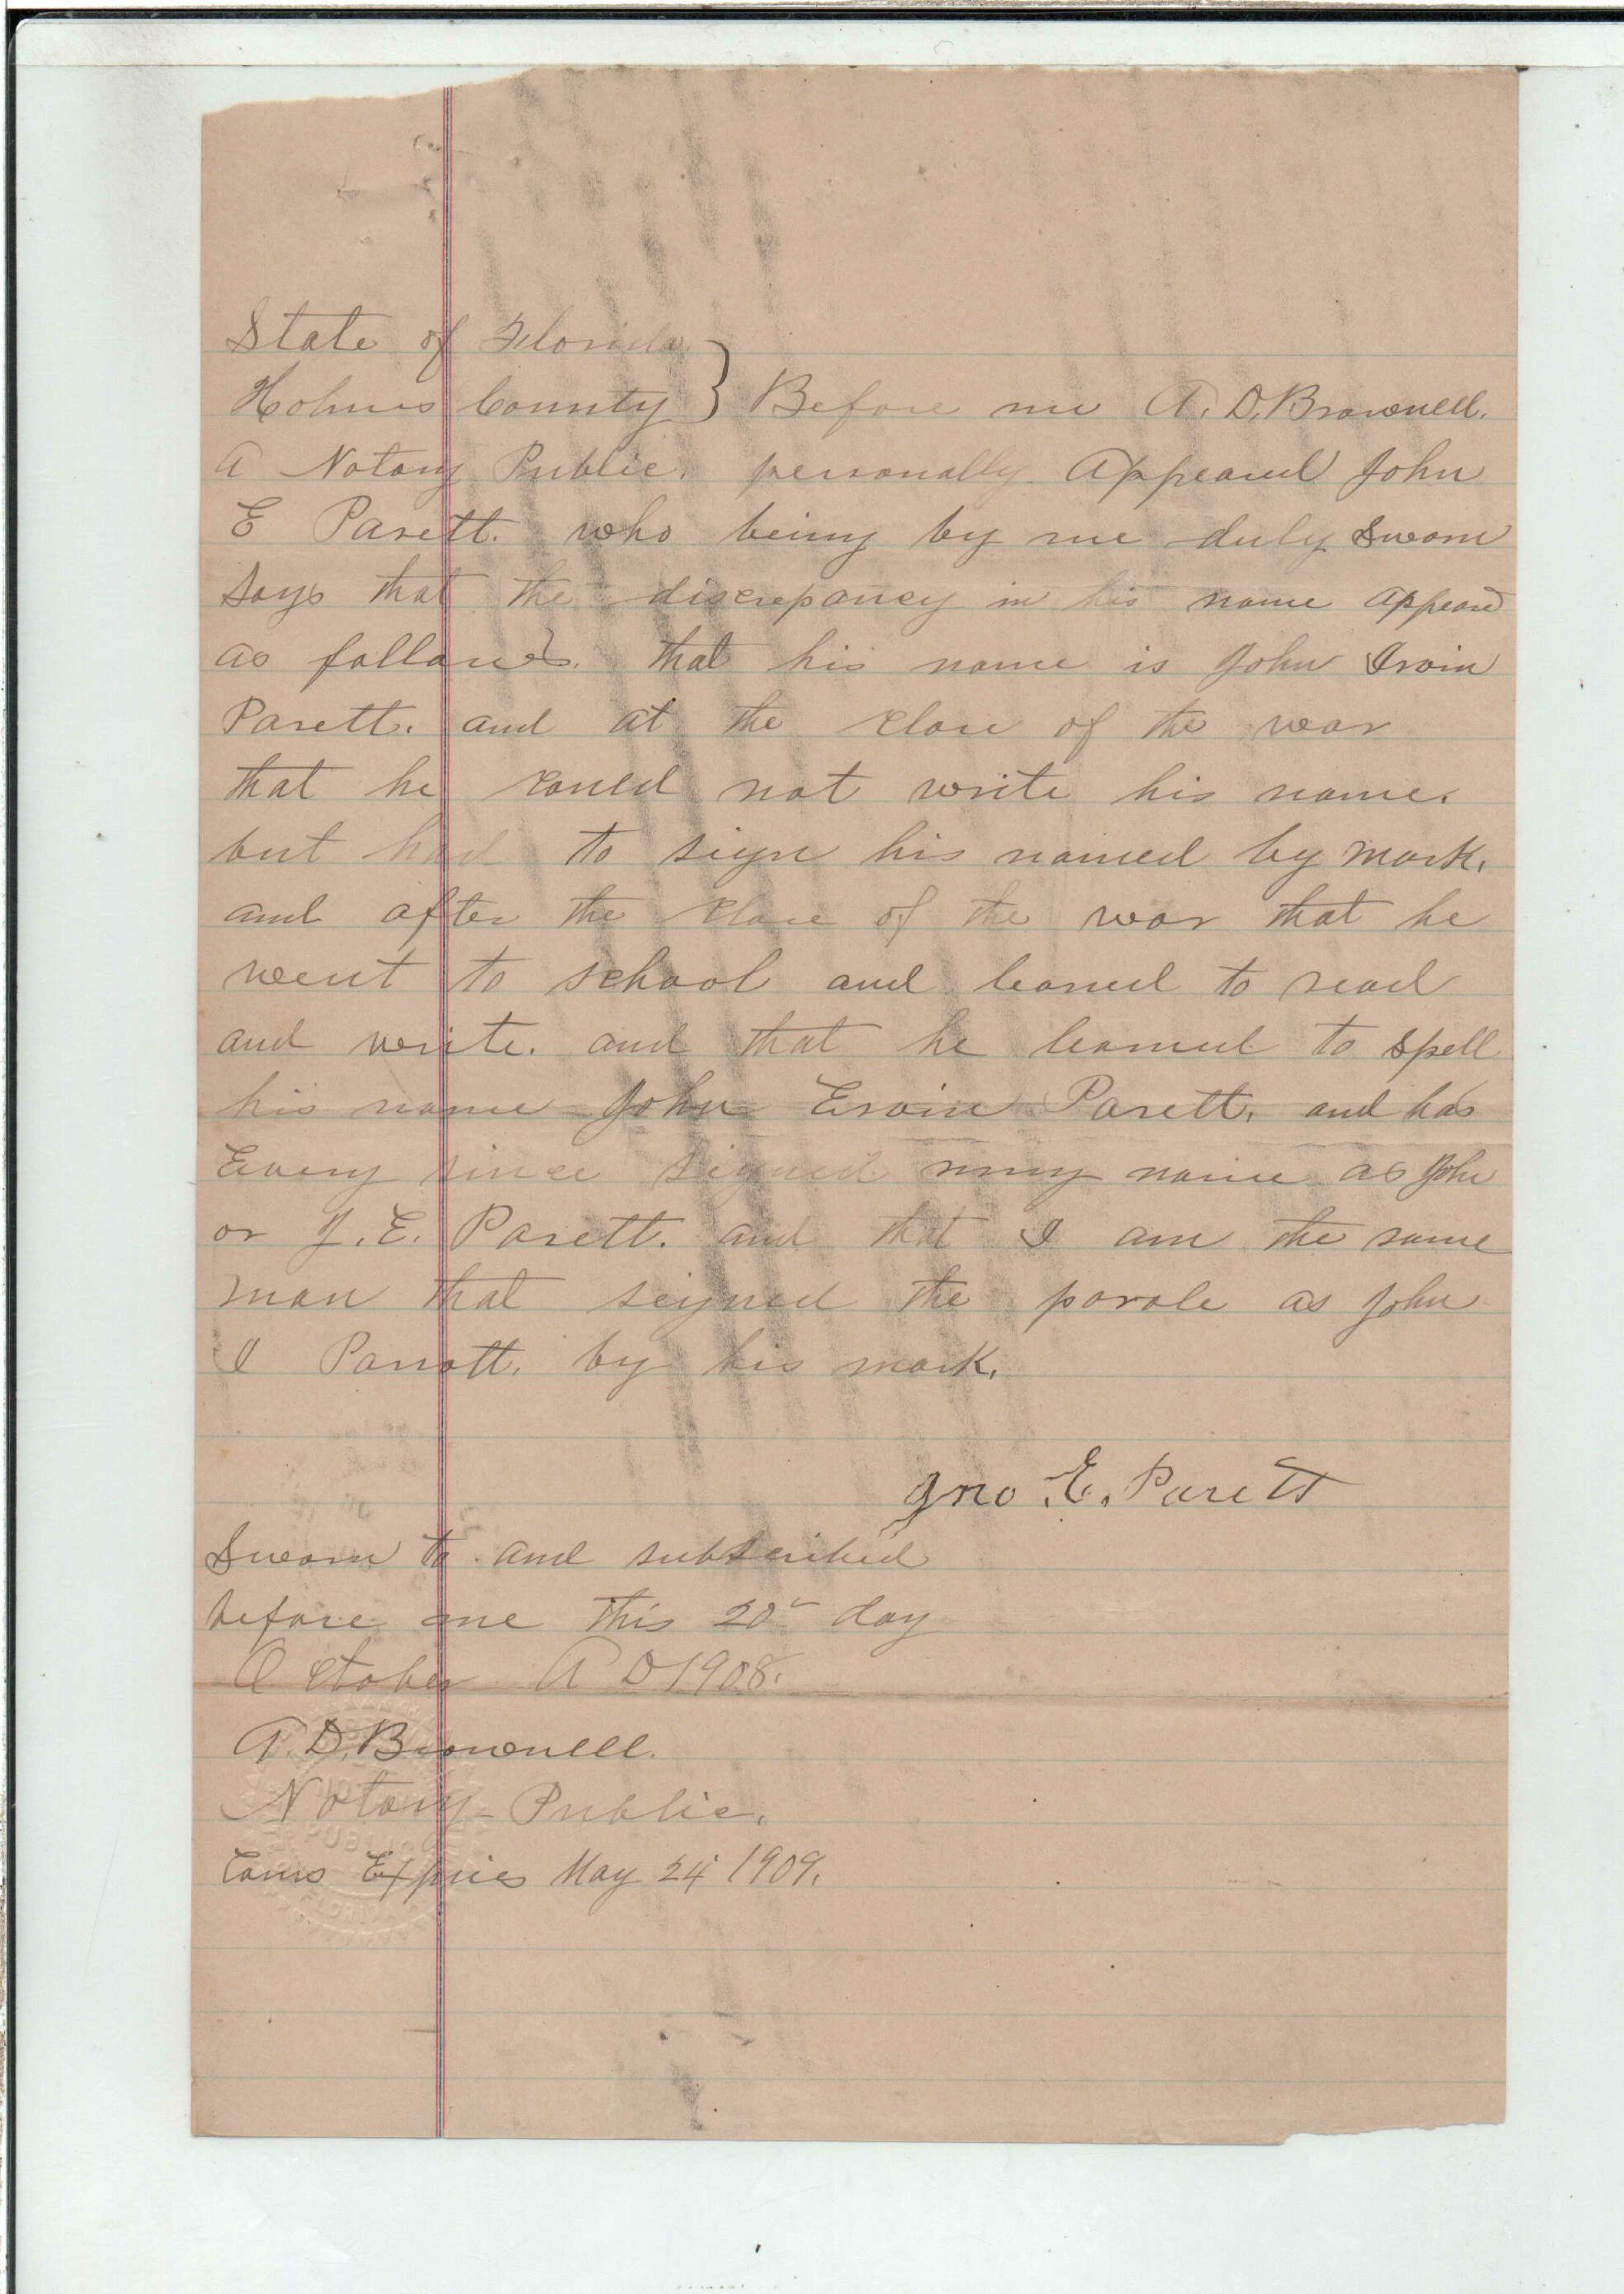 State of Florida
Holmes County } Before me A. D. Brownell.
A Notary Public. personally Appeared John
E Parett. who being by me duly Sworn
Says that the discrepancy in his name appears
as follows. that his name is John Irvin
Parett. and at the close of the war
that he could not write his name.
but had to sign his named by mark.
and after the close of the war that he
went to school and learned to read
and write. and that he learned to spell
his name John Ervin Parett. and has
Every since signed my name as John
or J. E. Parett. and that I am the same
man that signed the parole as John
I Parrott. by his mark.
Jno. E. Parett
Sworn to and subscribed
before me this 20" day
October A D 1908.
A. D. Brownell.
Notary Public.
Coms Expires May 24 1909.